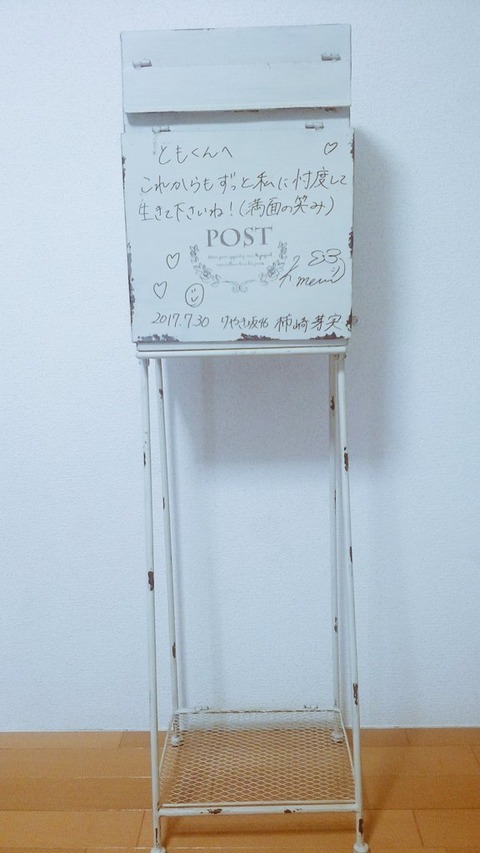 ともくんへ
これからもずっと私に忖度して
生きて下さいね！(満面の笑み)
POST
memi
2017.7.30 けやき坂46 柿崎芽実